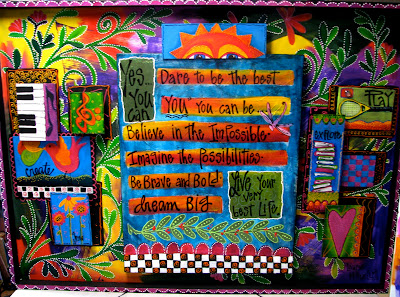 Yes,
You
Can
Dare to be the best
YOU you can be...
Believe in the Impossible
Imagine the Possibilities
Be Brave and Bold
dream Big
Live Your
very
Best Life
Create
PLAY
explore